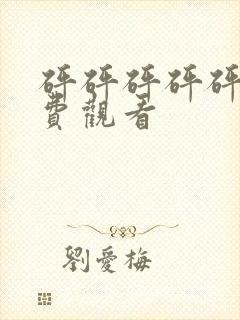 砰砰砰砰砰
費觀看
劉愛梅